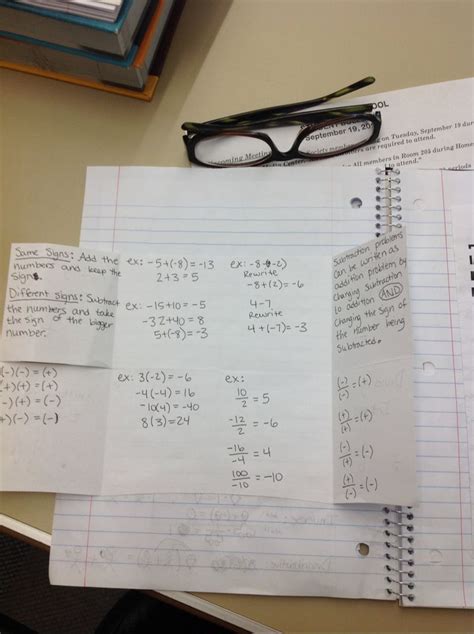 OOL
September 19, 20
on Tuesday, September 19 dur
coming Meeting
Society members are required to attend.
Center
All members in Room 205 during Home
to attend."
periods
Same Signs: Add the
numbers and keep the
sign.
Different signs: Subtract
the numbers and take
the sign of the bigger
number.
ex: -5+(-8)=-13
2+3=5
ex: -15+10=-5
-32+40=8
5+(-8)=-3
ex: -8-(-2)
Rewrite
-8+(2)=-6
4-7
Rewrite
4+(-7)=-3
Subtraction problems
can be written as
addition problem by
changing subtraction
to addition AND
changing the sign of
the number being
subtracted.
(-)(-)=(+)
(+)(+)=(+)
-)(+)=(-)
+)(-)=(-)
ex: 3(-2)=-6
-4(-4)=16
-10(4)=-40
8(3)=24
ex:
10/2=5
-12/2=-6
-16/-4=4
100/-10=-10
(-)/(-)=(+)
(+)/(+)=(+)
(-)/(+)=(-)
(+)/(-)=(-)